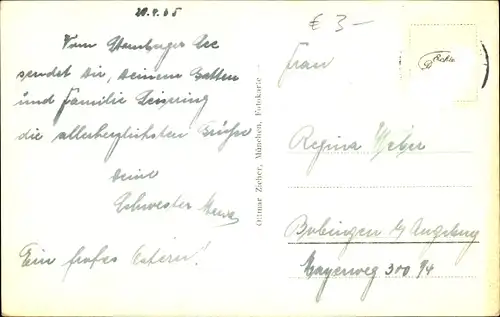 20.4.65
Vom Starnberger See
sendet Dir, Deinem Betten
und Familie Leissring
die allerherzlichsten Grüße
Deine
Schwester
Ein frohes Ostern!
€ 3-
Frau
Regina Weber
Bobingen b/ Augsburg
Mayerweg 300 1/4
Ottmar Zieher, München, Fotokarte